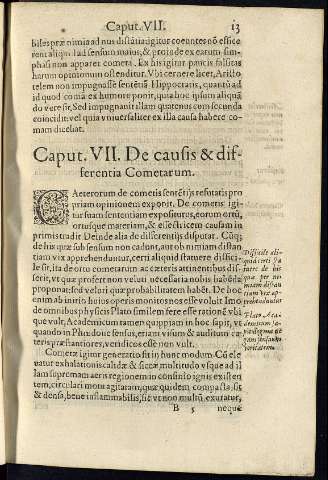 Caput. VII. 13
biles præ nimia ad nos distãtia igitur coeuntes nõ effice
rent aliquid ad sensum maius, & proïnde ex earum sim-
phasi non apparet cometa. Ex his igitur paucis falsitas
harum opinionum ostenditur. Vbi cernere licet, Aristo
telem non impugnasse sentẽtiã Hippocratis, quantũ ad
id quod comã ex humore ponit, quia hoc ipsum aliquã
do vere fit, Sed impugnauit illam quatenus cum secunda
coincidit: vel quia vniuersaliter ex illa causa habere co-
mam dicebat.
Caput. VII. De causis & dif-
ferentia Cometarum.
CAeterorum de cometis sentẽtijs refutatis pro
priam opinionem exponit. De cometis igi
tur suam sententiam expositurus, eorum ortũ,
ortusque materiam, & efficientem causam in
primis tradit. Deinde alia de differentijs disputat. Cũq;
de his quæ sub sensum non cadunt, aut ob nimiam distan
tiam vix apprehenduntur, certi aliquid statuere diffici-
le sit, ita de ortu cometarum ac cæteris attinentibus dif-
ferit, vt quæ profert non veluti necessaria nobis habẽda
proponat, sed veluti quæ probabilitatem habẽt. De hoc
enim ab initio huius operis monitos nos esse voluit. Imo
de omnibus physicis Plato simile fere esse rationẽ vbi-
que vult, Academicum tamen quippiam in hoc sapit, vt
quando in Phædone sensus, etiam visum & auditum cæ
teris præstantiores, veridicos esse non vult.
Difficile ali-
quid certi sta
tuere de his
quæ ob ni-
miam distan
tiam vix ap-
prehenduntur
Plato Aca-
Cometæ igitur generatio fit in hunc modum. Cũ ele
uatur exhalationis calidæ & siccæ multitudo vsque ad il
lam supremam aeris regionem in confinio ignis existen
tem, circulari motu agitatam, quæ quidem compacta sit
& densa, bene inflammabilis, sic vt non multũ exuratur,
B 5 neque